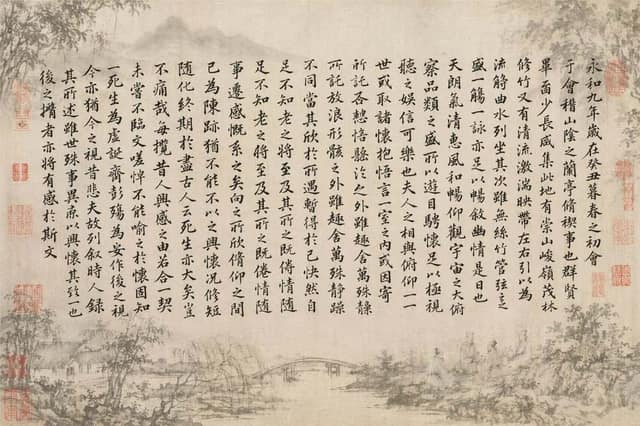 永和九年歲在癸丑暮春之初會
于會稽山陰之蘭亭脩禊事也群賢
畢至少長咸集此地有崇山峻嶺茂林
修竹又有清流激湍映帶左右引以為
流觴曲水列坐其次雖無絲竹管弦之
盛一觴一詠亦足以暢敘幽情是日也
天朗氣清惠風和暢仰觀宇宙之大俯
察品類之盛所以遊目騁懷足以極視
聽之娛信可樂也夫人之相與俯仰一一
世或取諸懷抱悟言一室之內或因寄
託各愁悟懸於之外雖趣舍萬殊靜
所託放浪形骸之外雖趣舍萬殊靜躁
不同當其欣於所遇暫得於己快然自
足不知老之將至及其所之既倦情隨
足不知老之將至及其所之既倦情隨
事遷感慨系之矣向之所欣俯仰之間
已為陳跡猶不能不以之興懷況修短
隨化終期於盡古人云死生亦大矣豈
不痛哉每攬昔人興感之由若合一契
未嘗不臨文嗟悼不能喻之於懷固知
一死生為虛誕齊彭殤為妄作後之視
今亦猶今之視昔悲夫故列敘時人錄
其所述雖世殊事異以興懷其致一也
後之攬者亦將有感於斯文